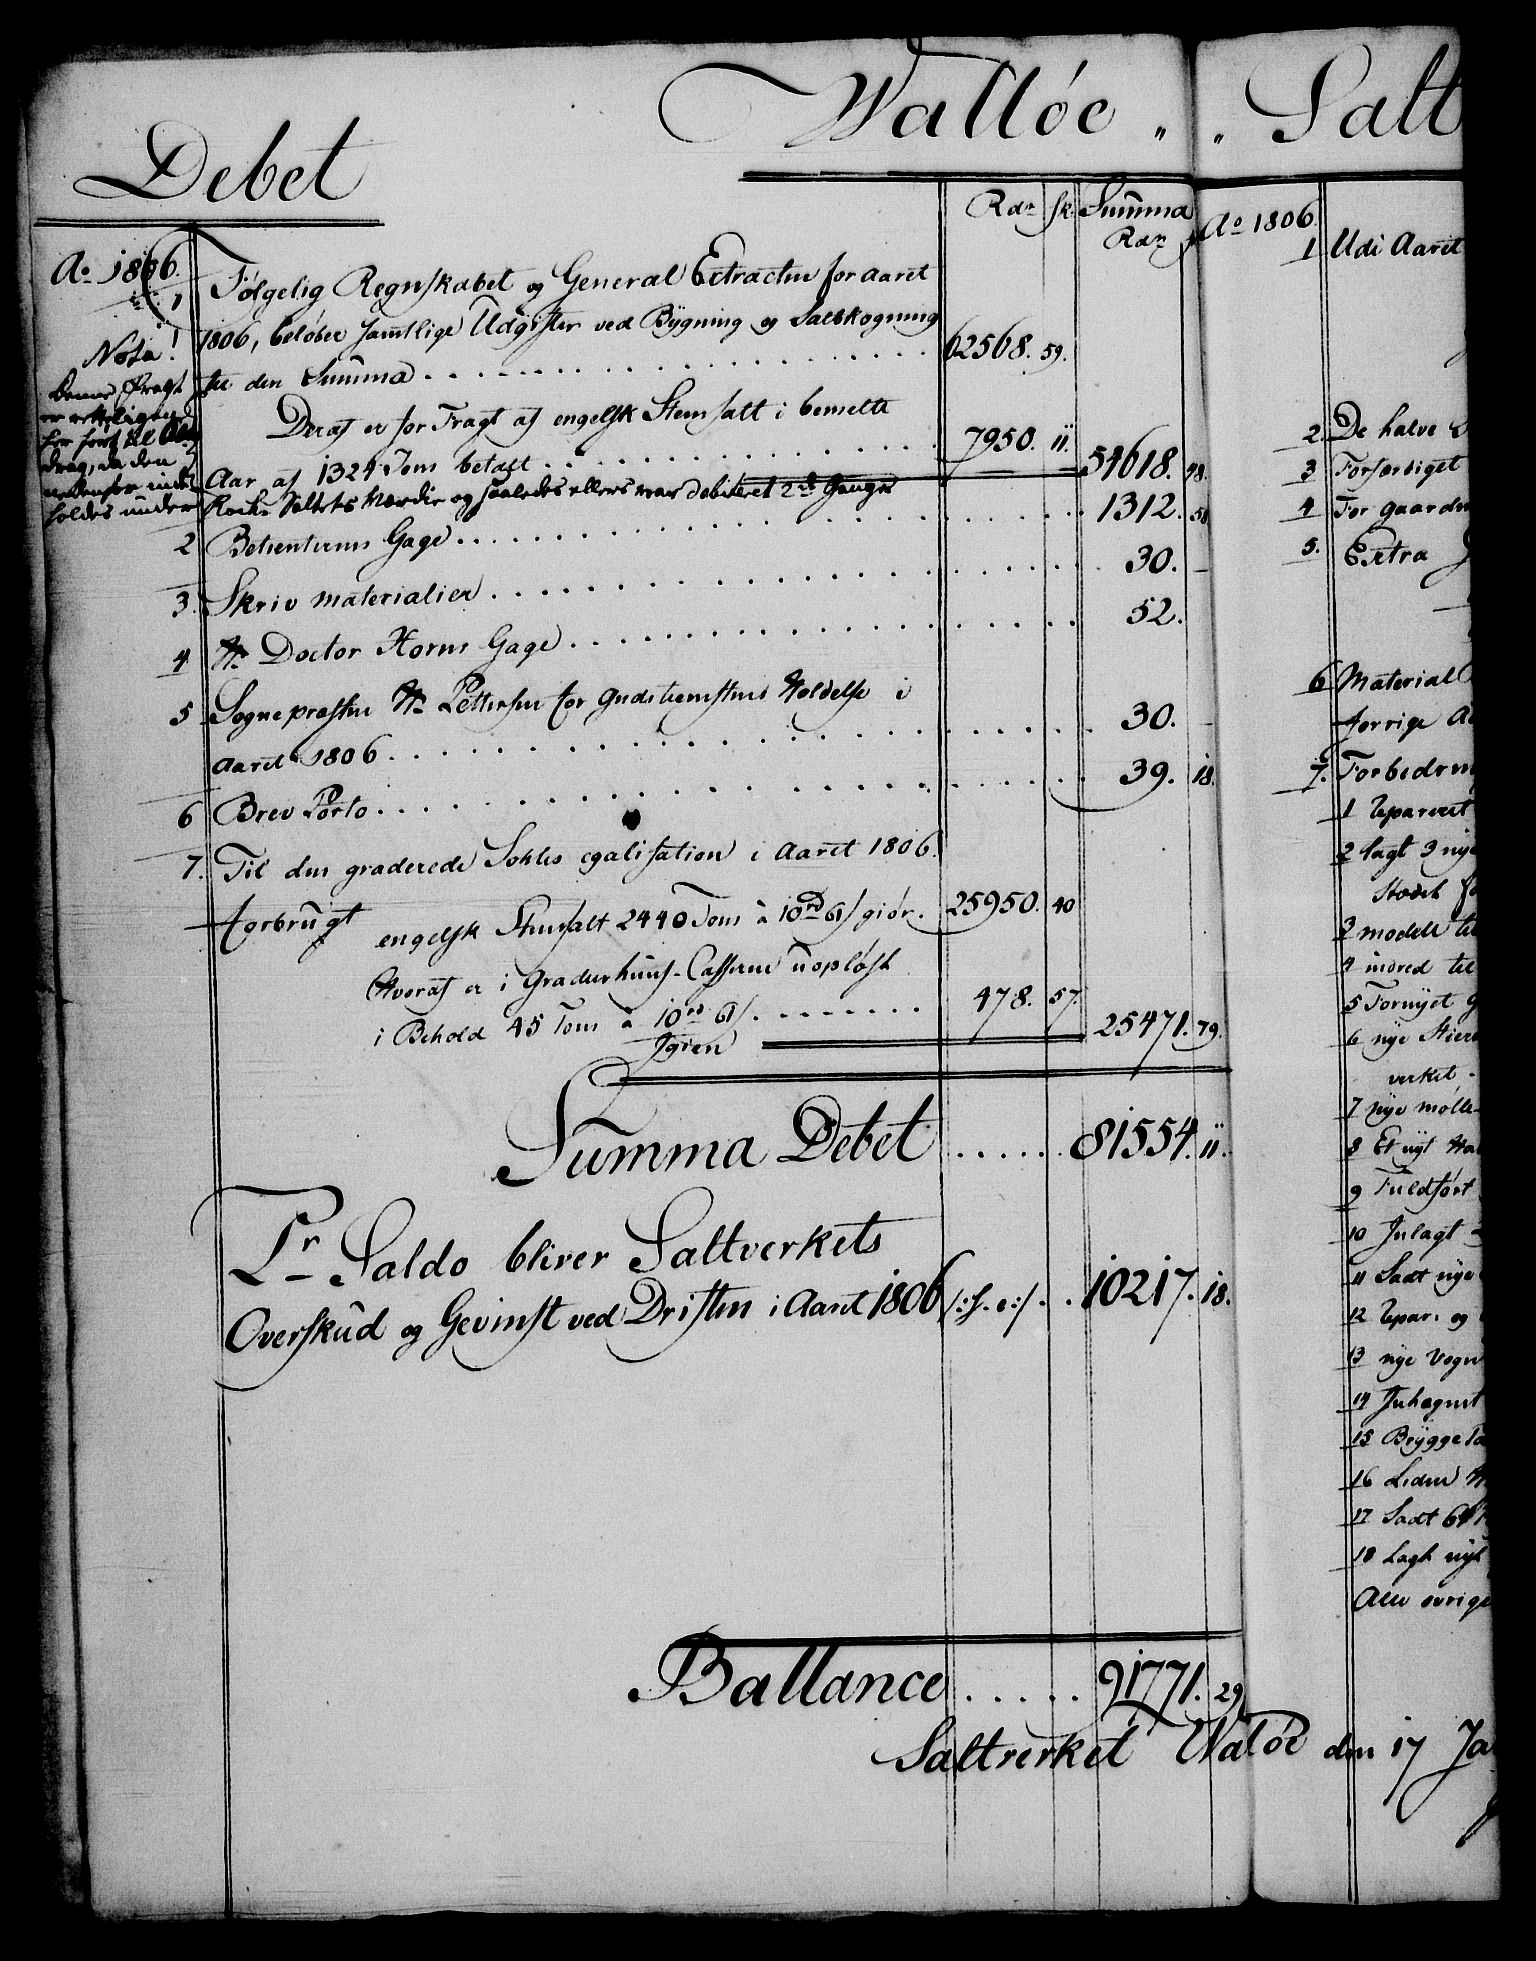 Walløe „ „ Salt
Debet
Rdr sk. Summa
Rdr
Ao 1806.
1 Følgelig Regnskabet og General Extracten for aaret
1806, beløber samtlige Udgifter ved Bygning og Saltkogning
til den Summa . . . 62568. 59.
Deraf er for Fragt af engelsk Steensalt i bemelte
Aar af 1324 Tons betalt . . . 7950. 11. 54618. 48.
Nota!
Denne Fragt
er
her ført til
drag, da den
nedenfor inde
holdes under
Rock Saltets Værdie og saaledes ellers var debiteret 2de Gange
2 Betienternes Gage . . . 1312. 58
3. Skriv materialier . . . 30. –
4 Hr Doctor Horns Gage . . . 52.
5 Sognepræsten Hr Pettersen for Gudstienestens Holdelse i
aaret 1806 . . . 30. –
6 Brev Porto . . . 39. 18.
7. Til den graderede Sohles egalisation i Aaret 1806.
forbrugt
engelsk Steensalt 2440 Tons à 10rd 61s giør. 25950. 40
Hvoraf er i Graderhuus-Casserne uopløst
i Behold 45 Tons à 10rd 61s . . . 478. 57.
Igien 25471. 79.
Summa Debet . . . . . 81554. 11.
Pr Saldo bliver Saltverkets
Overskud og Gevinst ved Driften i Aaret 1806 /:S. e:/ . . 10217. 18.
Ballance . . . . . 91771. 29
Saltverket Waløe den 17 Ja
Ao 1806.
1 Udi Aaret
2 De halve
3 Forfærdiget
4 For gaarden
5. Extra
6 Material
forrige A
7. Forbedrin
1 Repareret
2 lagt 3 nye
Stødet
3 modell til
4 indred til
5 Fornyet G
6 nye Stier
verket
7 nye mølle
8 Et nyt
9 Fuldført
10 Inlagt
11 Sadt nye
12 Repar: og
13 nye Vogn
14 Inhegnet
15 Brygge
16 Leden
17 Sadt 61
18 Lagt nyt
Alle øvrige